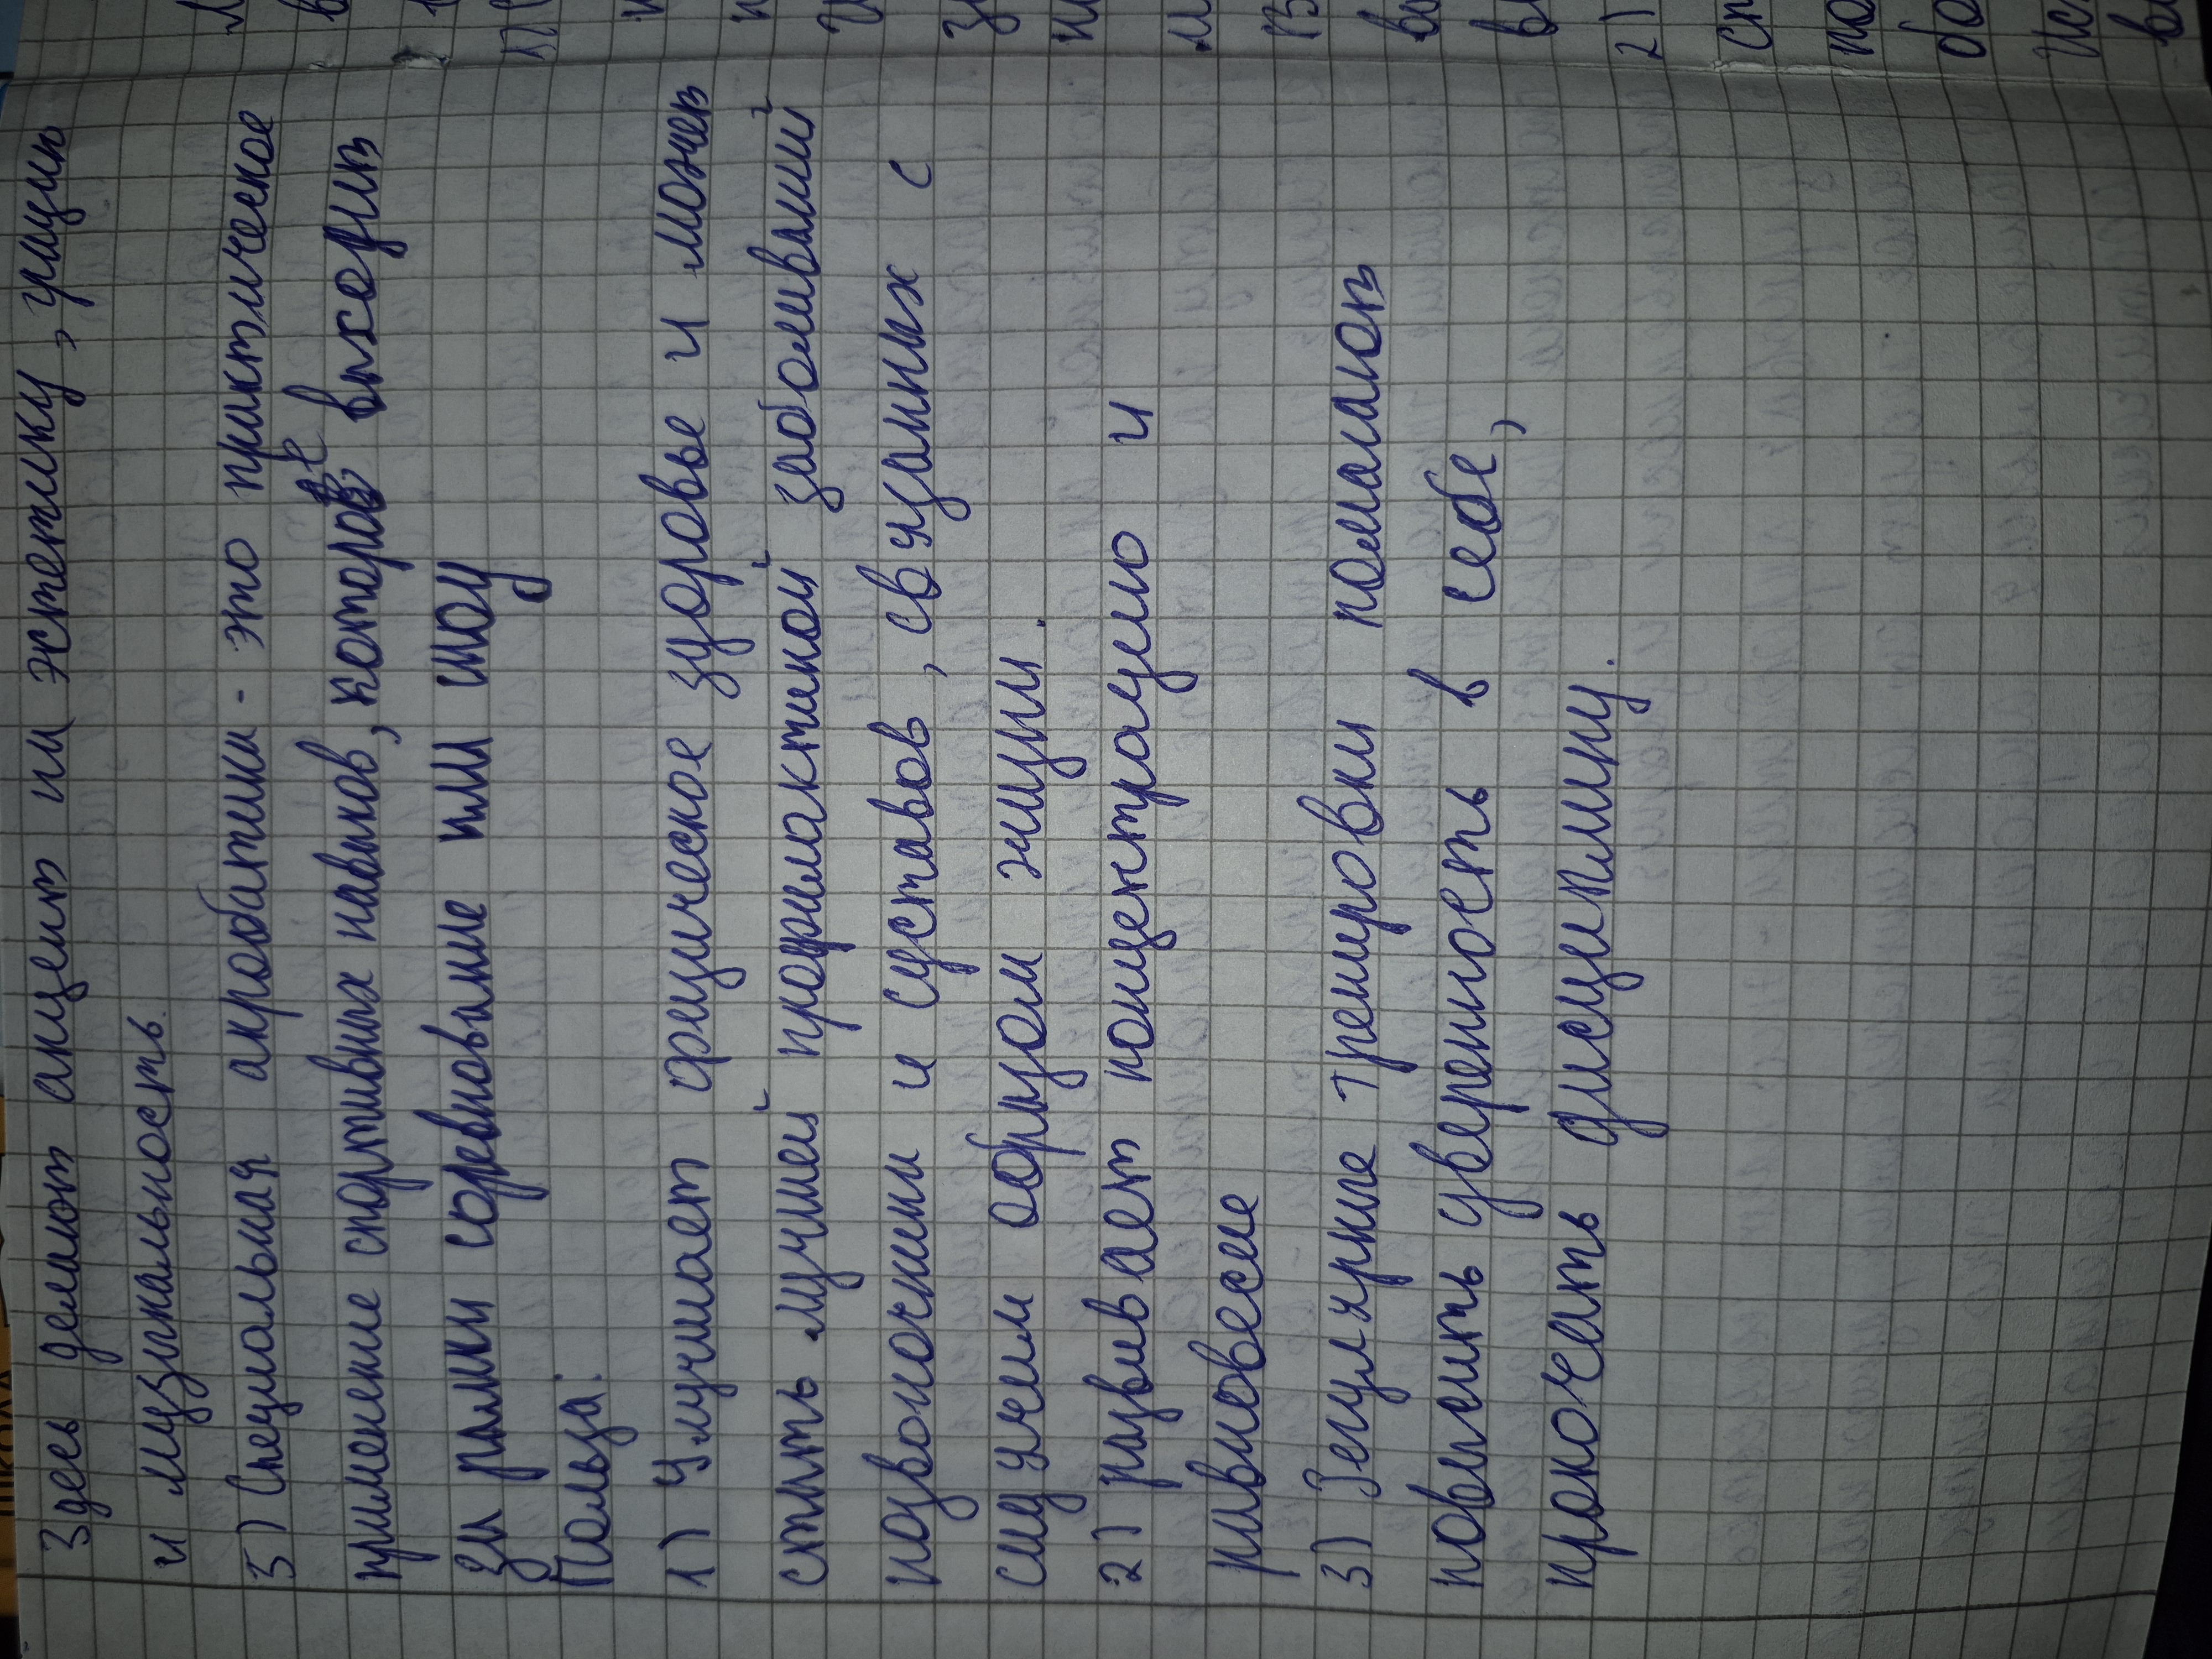 Здесь делают акцент на эстетику, грацию
и музыкальность.
3) Специальная акробатика - это практическое
применение спортивных навыков, которые выходят
за рамки соревнование или шоу
Польза:
1) Улучшает физическое здоровье и может
стать лучшей профилактикой заболеваний
позвоночника и суставов, связанных с
сидячем образом жизни.
2) развивает концентрацию и
равновесие
3) Регулярные тренировки помогают
повысить уверенность в себе,
прокочать дисциплину.